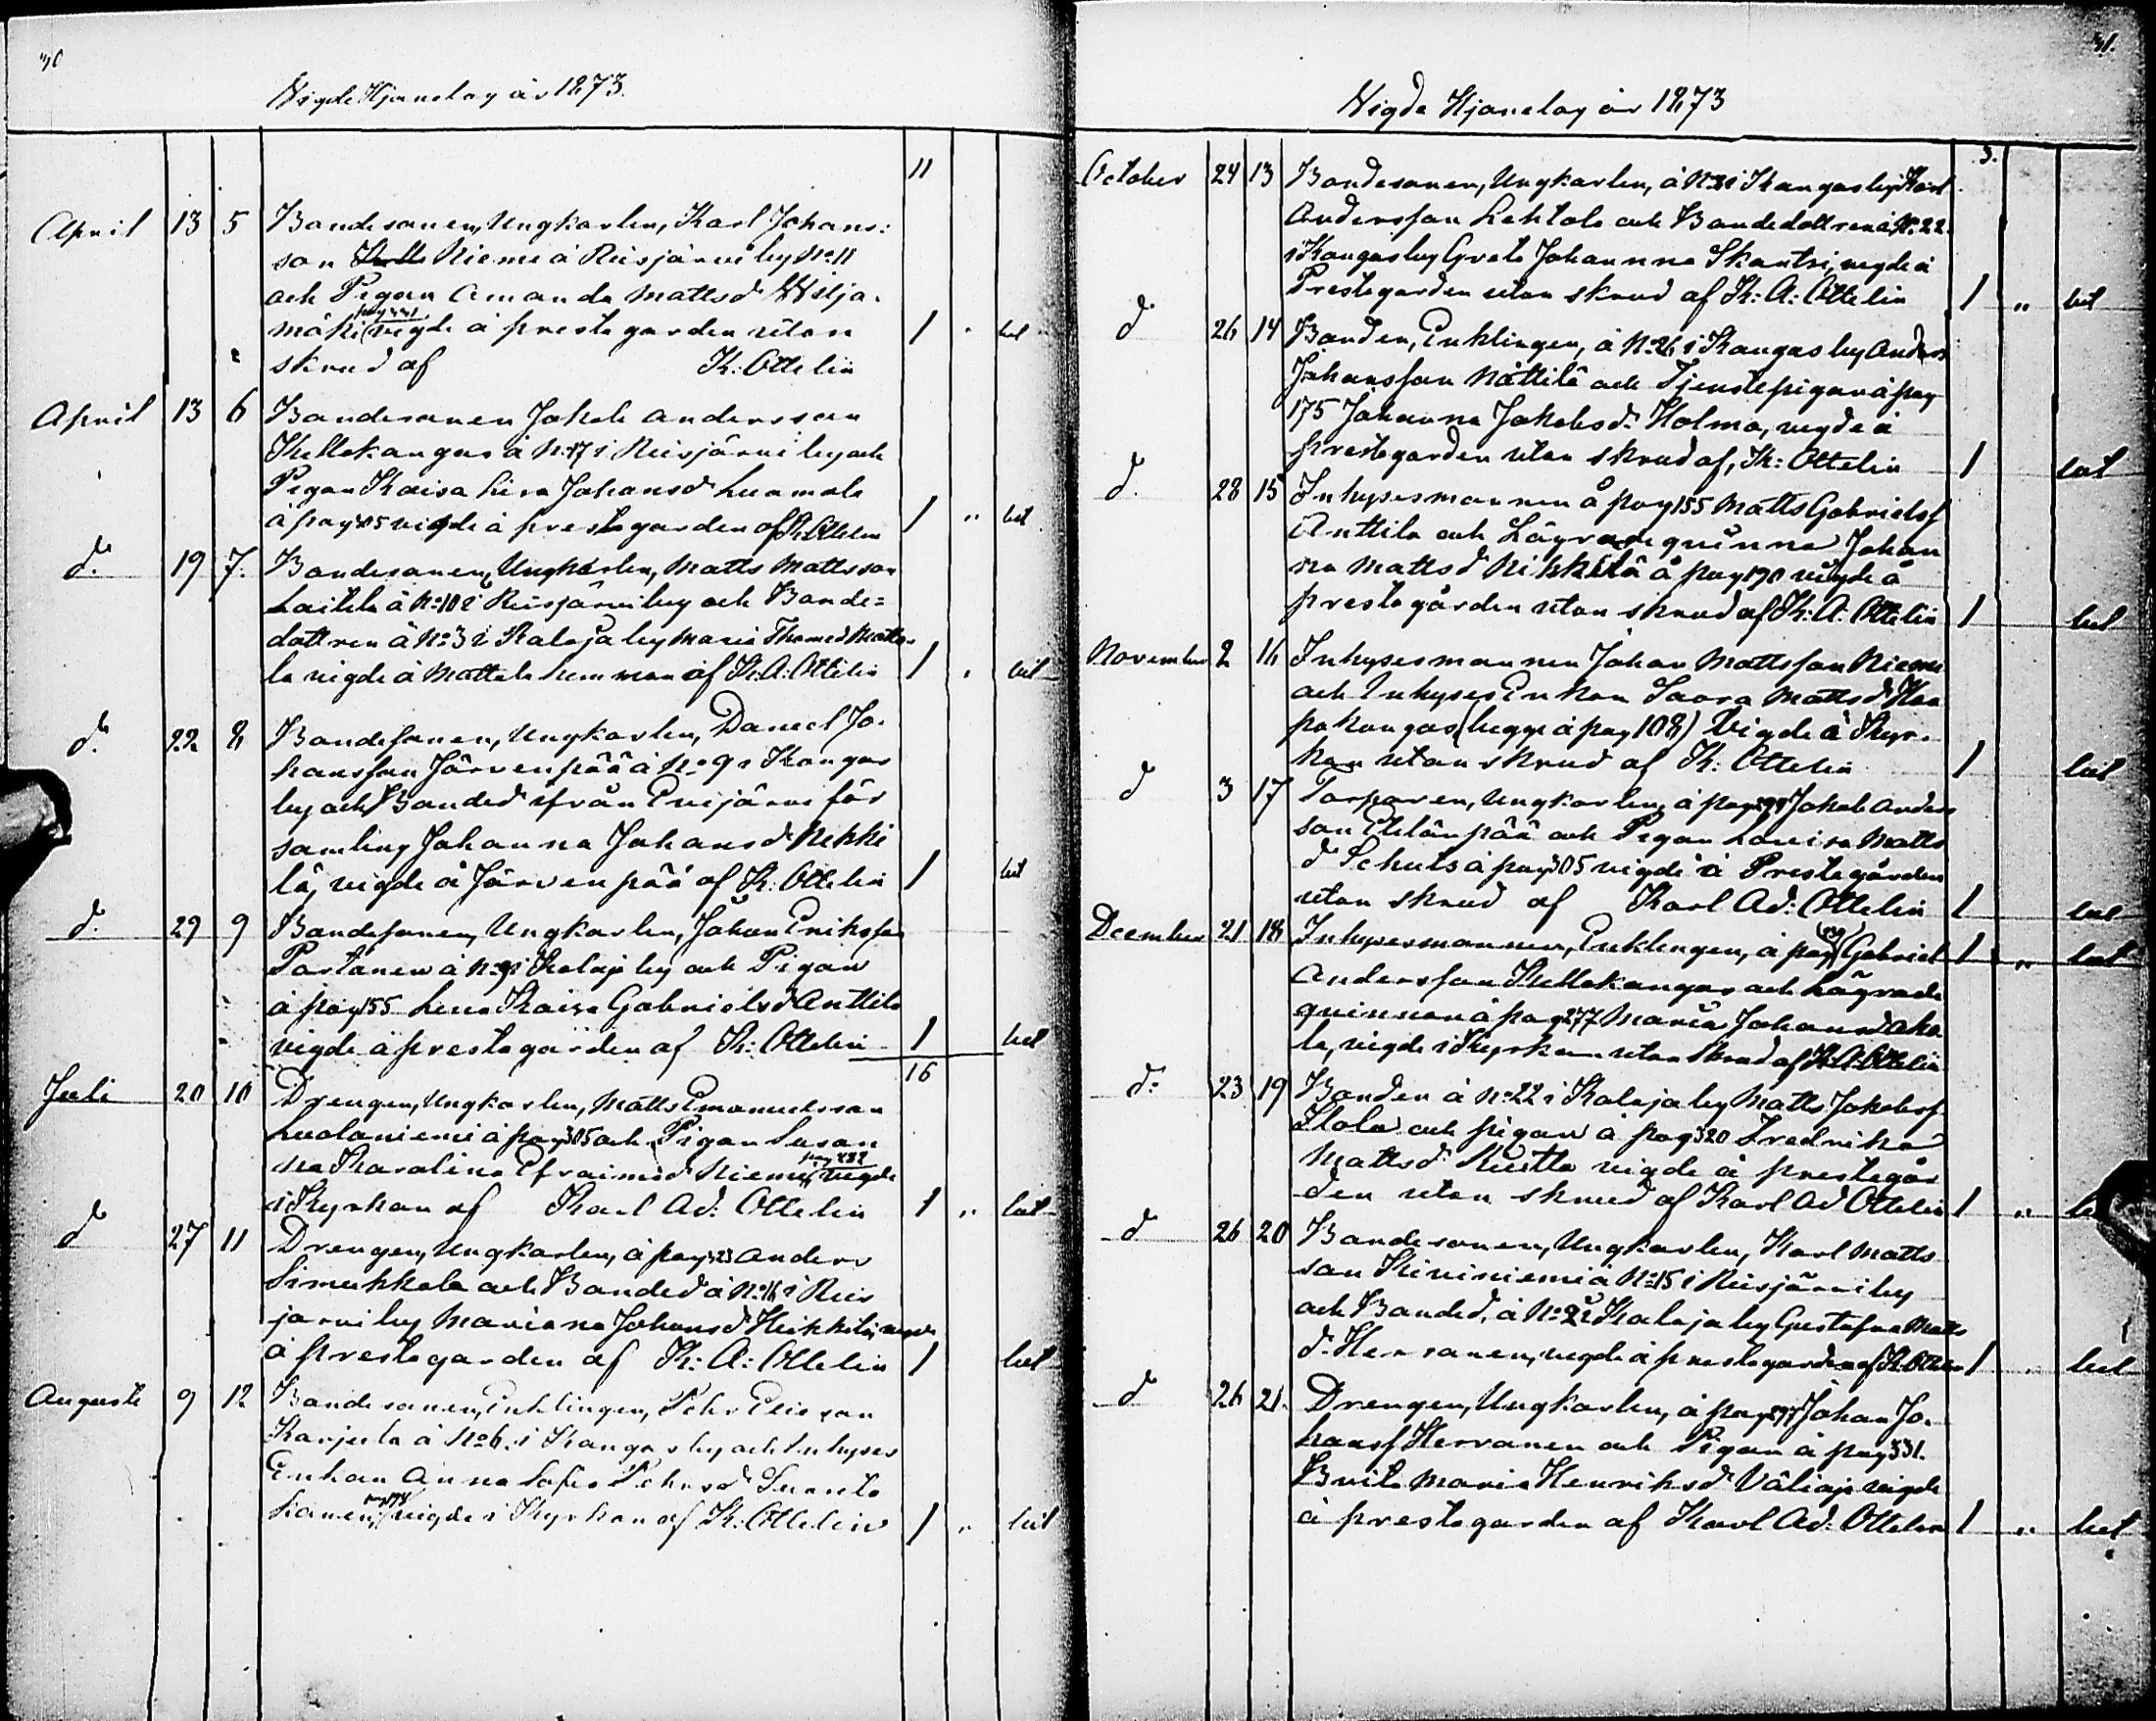 30
Vigde Hjonelag år 1873.
11
April 13 5 Bondesonen, Ungkarlen, Karl Johans:
son Niemi å Reisjärvi by No 11
och Pigan Amanda Mattsd Wilja-
mäki vigde å prestegarden utan 1 " lut
skrud af K: Ottelin
April 13 6 Bondesonen Jakob Andersson
Kellokangas å No 17 i Reisjärvi by och
Pigan Kaisa Lisa Johansd Luomala
å pag 85 vigde å prestegarden af K. Ottelin 1 " lut
d. 19 7. Bondesonen, Ungkarlen, Matts Mattsson
Laitila å No 10 i Reisjärvi by och Bonde=
dottren å No 3 i Kalaja by Maria Thomasd Matte-
la vigde å Mattala hemman af K. A. Ottelin 1 " lut
d. 22 8 Bondesonen, Ungkarlen, Daniel Jo-
hansson Järvenpää å No 9 i Kangas
by och Bonded ifrån Evijärvi för
samling Johanna Johansd Nikki
lä, vigde å Järvenpää af K. Ottelin 1 lut
d. 29 9 Bondesonen, Ungkarlen, Johan Eriksson
Partanen å No 9 i Kalaja by och Pigan
å pag 155 Lena Kaisa Gabrielsd Anttila
vigde å prestegården af K: Ottelin 1 lut
16
Juli 20 10 Drengen, Ungkarlen, Matts Emanuelsson
Luolaniemi å pag 305 och Pigan Susan
na Karolina Efraimsd Niemi, vigde
i Kyrkan af Karl Ad: Ottelin 1 " lut
d 27 11 Drengen, Ungkarlen, å pag 323 Anders
Simukkala och Bonded å No 16 i Reis
jarvi by Mariana Johansd Heikkilä, vigde
å prestegarden af K: A: Ottelin 1 lut
Augusti 9 12 Bondesonen, Enklingen, Pehr Eliasson
Karjula å No 6. i Kangas by och Inhyses
Enkan Anna Sofia Pehrsd
vigde i Kyrkan af K: Ottelin 1 " lut
31.
Vigde Hjonelag år 1873
5.
October 24 13 Bondesonen, Ungkarlen, å No 3 i Kangas by Karl
Andersson Lehtola och Bondedottren å No. 22.
i Kangas by Greta Johanna Skantsi, vigde å
Prestegarden utan skrud af K: A: Ottelin 1 " lut
d 26 14 Bonden, Enklingen, å No 26 i Kangas by Anders
Johansson Nättilä och Tjenstepigan å pag
175 Johanna Jakobsd: Holma, vigde å
prestegarden utan skrud af, K: Ottelin 1 lut
d. 28 15 Inhysesmannen å pag 155 Matts Gabrielsf
Anttila och Lägrade qvinna Johan
na Mattsd Nikkilä å pag 170 vigde å
prestegården utan skrud af K. A. Ottelin 1 lut
November 2 16 Inhysesmannen Johan Mattsson Niemi
och Inhyses Enkan Saara Mattsd Haa
pakangas (begge å pag 108) Vigde å Kyr-
kan utan skrud af K: Ottelin 1 lut
d 3 17 Torparen, Ungkarlen, å pag Jakob Anders
son Etelänpää och Pigan Lovisa Matts
d Schuts å pag 305 vigde å Prestegården
utan skrud af Karl Ad: Ottelin 1 lut
December 21 18 Inhysesmannen, Enklingen, å pag Gabriel 1 " lut
Andersson Kellokangas och Lägrade
qvinnan å pag 277 Maria Johansd Aho-
la, vigde i Kyrkan utan skrud af K. A. Ottelin
d: 23 19 Bonden å No 22 i Kalaja by Matts Jakobsf
Ilola och pigan å pag 320 Fredrika
Mattsd: vigde å prestegår
den utan skrud af Karl Ad Ottelin 1 "
d 26 20 Bondesonen, Ungkarlen, Karl Matts
son Kiviniemi å No 15 i Reisjärvi by
och Bonded, å No 2 i Kalaja by Gustafva Matts
d: Hersanen, vigde å prestegarden af K. Ottelin 1 " lut
d 26 21. Drengen, Ungkarlen, å pag 297 Johan Jo-
hansf Hervanen och Pigan å pag 331.
Brita Maria Henriksd Väliaja vigde
å prestegarden af Karl Ad: Ottelin 1 " lut